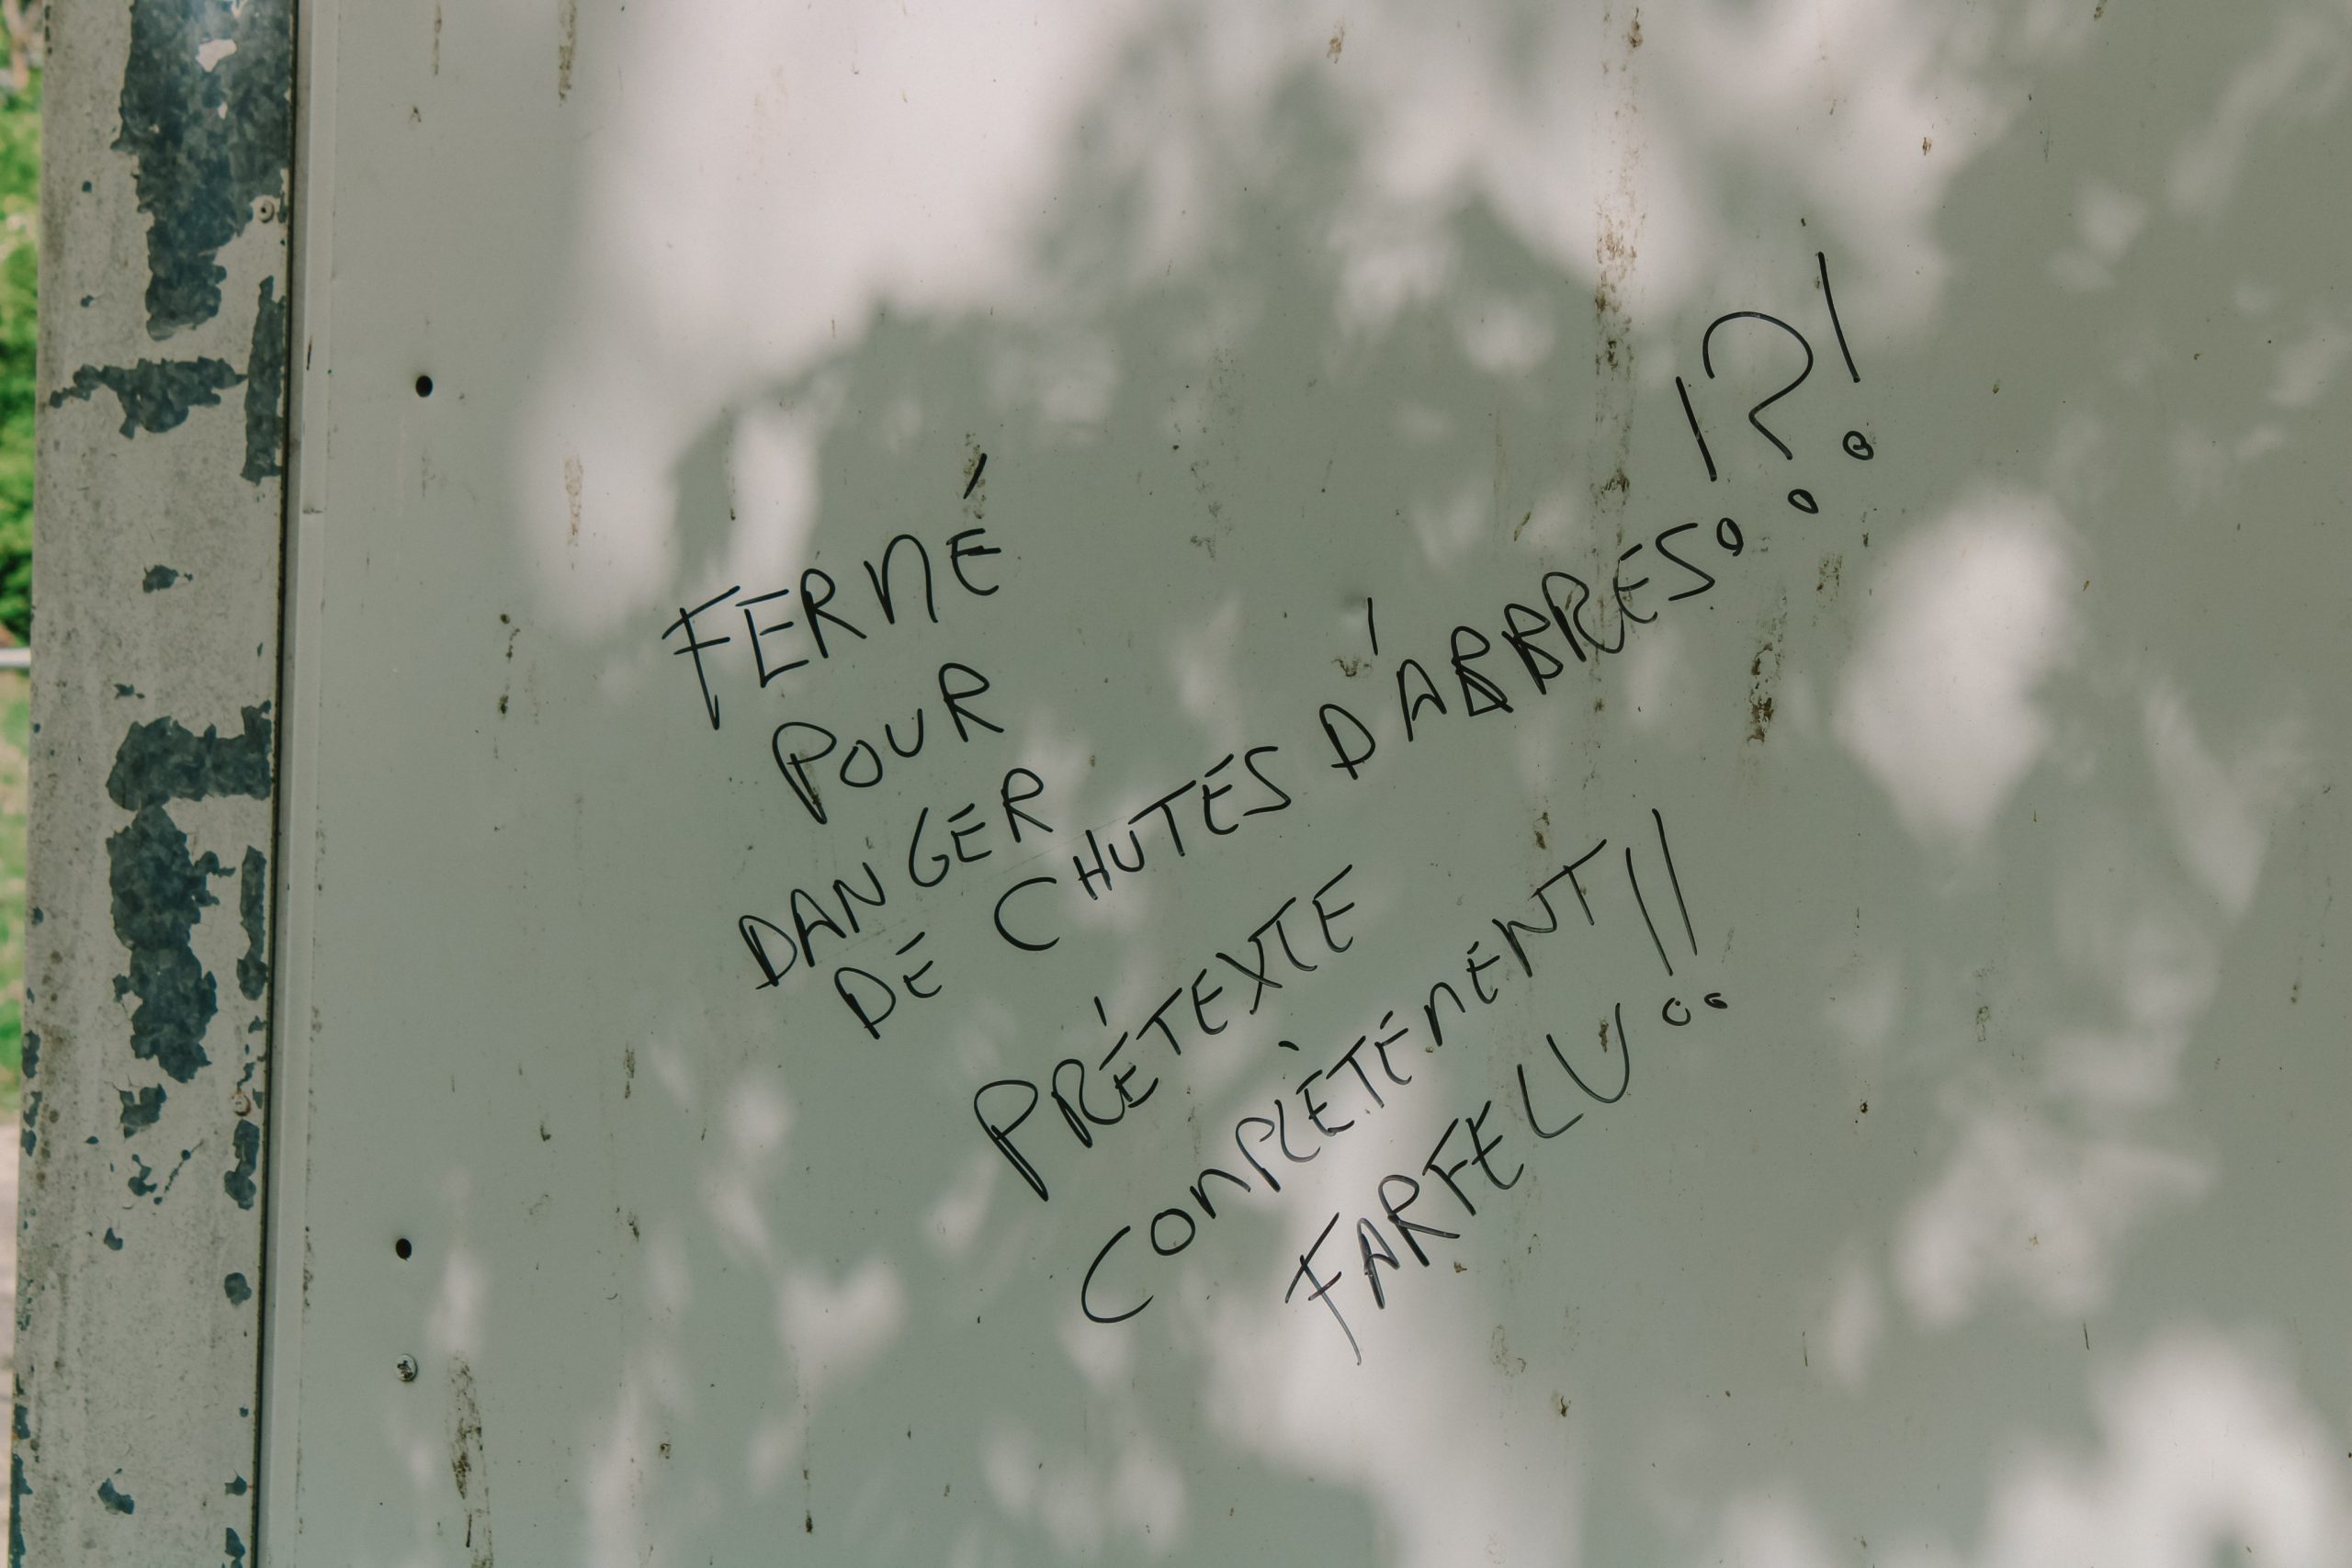 FERMÉ
POUR
DANGER
DE CHUTES D'ABBRES !?!
PRÉTEXTE
COMPLÈTEMENT
FARFELU !!